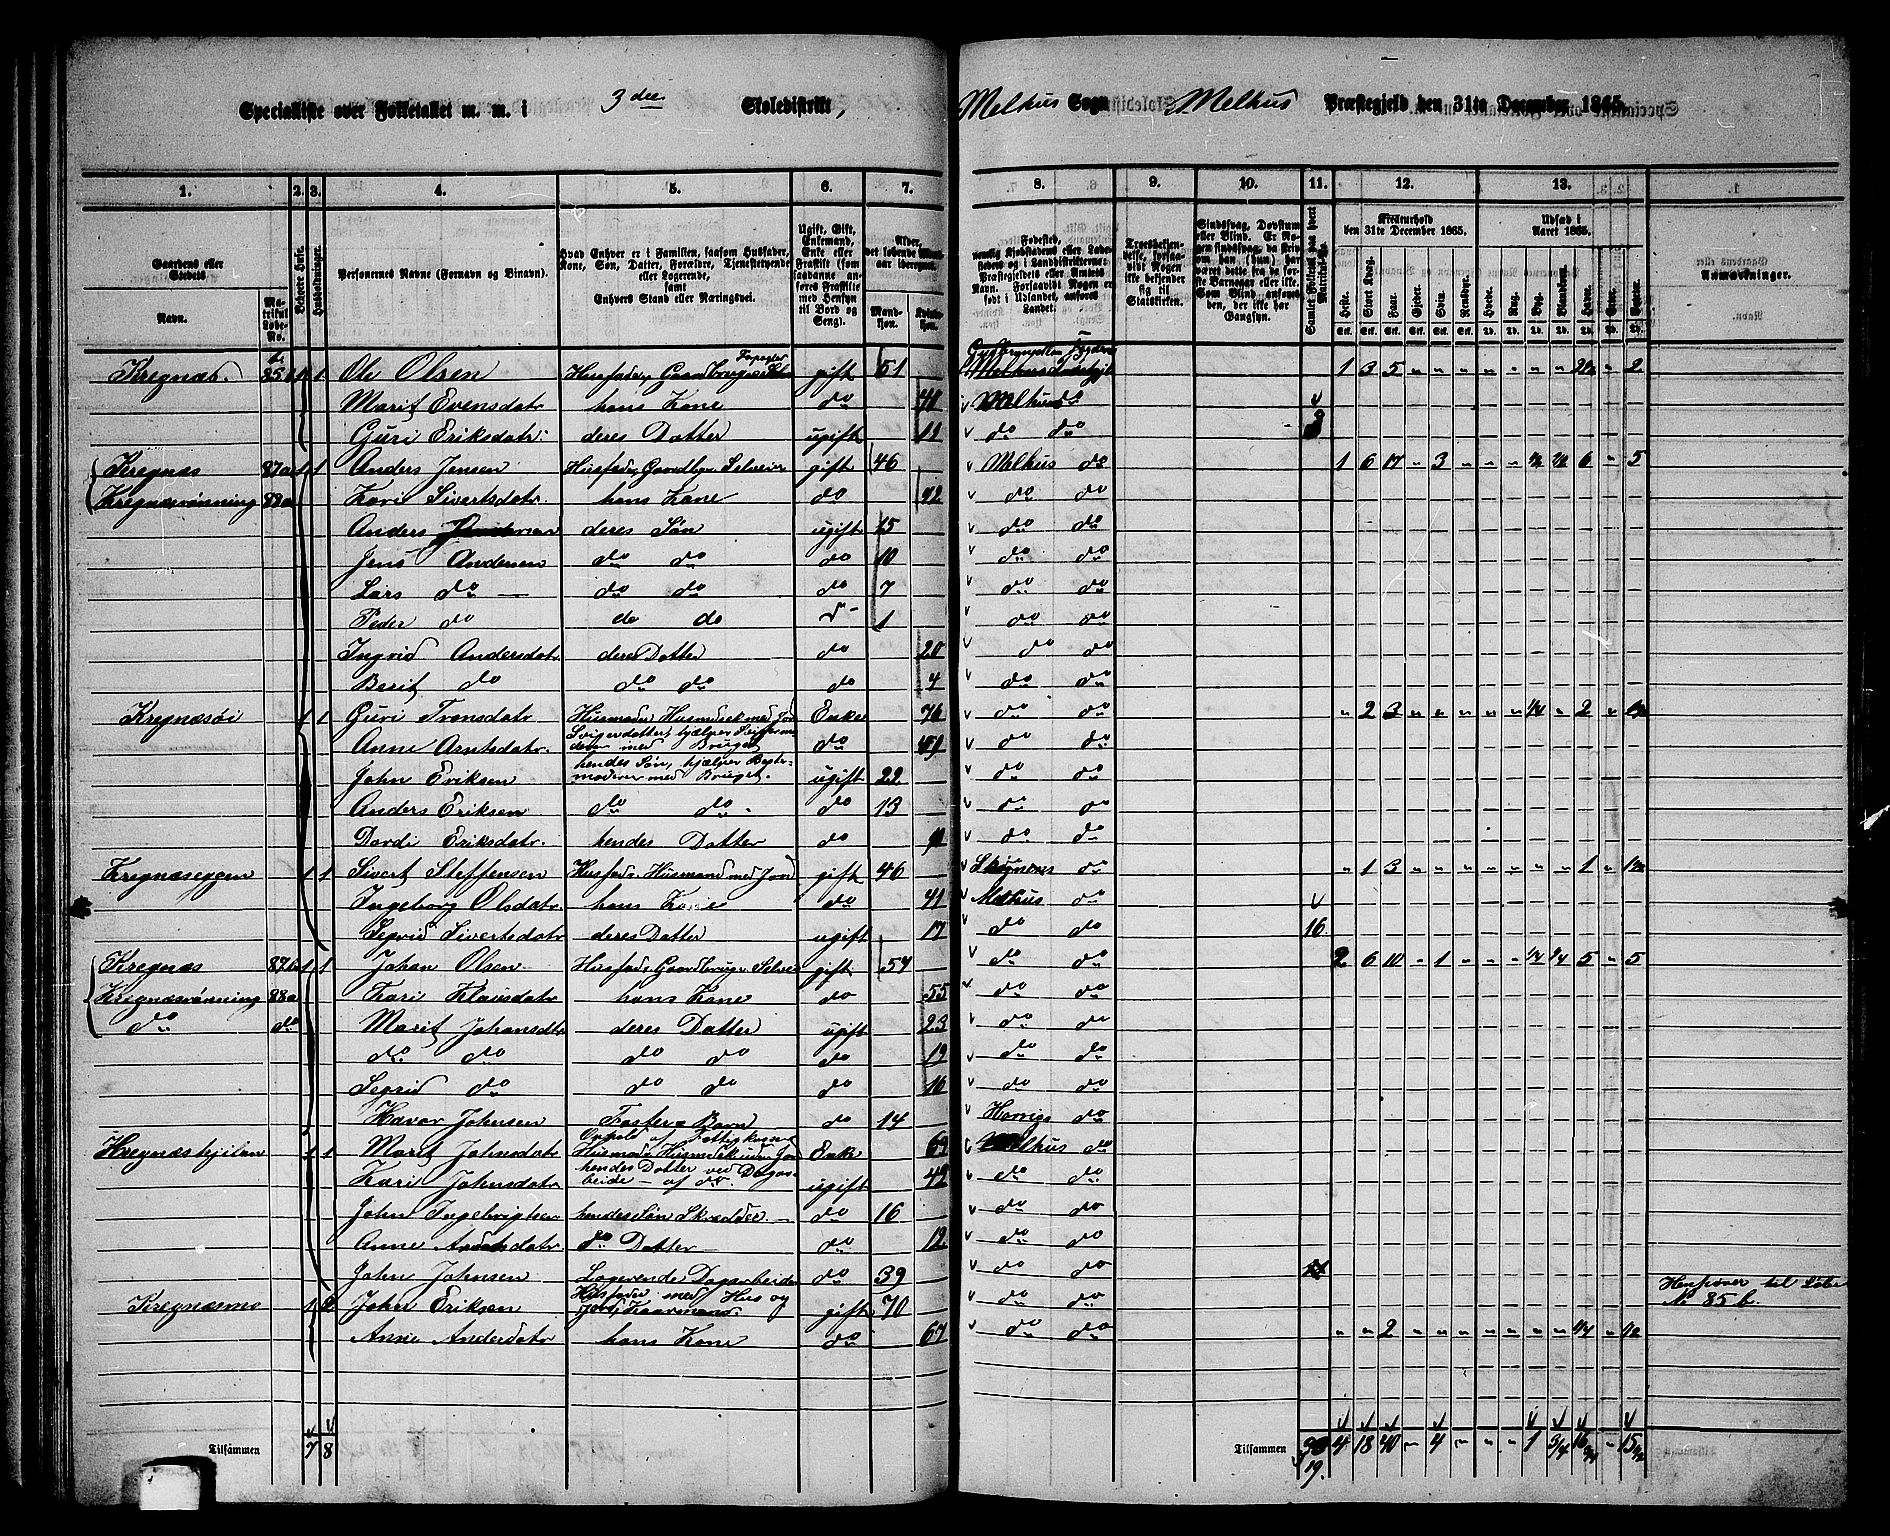 Specialliste over Folketallet m. m. i 3die Skoledistrikt, Melhus Sogn Melhus Præstegjeld den 31te December 1865.
1. 2. 3. 4. 5. 6. 7. 8. 9. 10. 11. 12. 13.
Gaardens eller Stedets
Navn.
Matrikul Løbe-No.
Beboede Huse.
Husholdninger.
Personernes Navne (Fornavn og Binavn).
Hvad Enhver er i Familien, saasom Husfader, Kone, Søn, Datter, Forældre, Tjenestetyende eller Logerende, samt Enhvers Stand eller Næringsvei.
Ugift, Gift, Enkemand, Enke eller Fraskilt (som saadanne anføres Fraskilte med Hensyn til Bord og Seng).
Alder, det løbende Alders-aar iberegnet.
Mandkjøn. Kvindekjøn.
Fødested, nemlig Kjøbstadens eller Ladestedets og i Landdistrikterne Præstegjeldets eller Amtets Navn. Forsaavidt Nogen er født i Udlandet, anføres Landet.
Troesbekjendelse, forsaavidt Nogen ikke bekjender sig til Statskirken.
Sindssvag, Døvstum eller Blind. Er Nogen sindssvag, da Kriv om han (hun) har været dette fra de første Barneaar eller ikke. Som Blind ansøres den, der ikke har Gangsyn.
Samlet Folketal paa hvert Matrikul-No.
Kreaturhold den 31te December 1865.
Udsæd i Aaret 1865.
Heste. Stort Kvæg. Faar. Gjeder. Svin. Rensdyr. Hvede. Rug. Byg. Blandkorn. Havre. Erter. Poteter.
Anmærkninger.
Kregnæs. 85 b 1 1 Ole Olsen Husfader, Gaardbruger gift 51 1 3 5 " " " " " " " " 2
Marit Evensdatr hans Kone do Melhus do
Guri Eriksdatr: deres Datter ugift 11 do do 3
Kregnæs 87a 1 1 Anders Jensen Husfader, Gaardbr. Selveier gift 46 Melhus do 1 6 17 " 3 " " " 6 " 5
Kregnæsrønning 88a Kari Sivertsdatr. hans Kone do 42 do do
Anders deres Søn ugift 15 do do
Jens Andersen do do do 10 do do
Lars do do do do 7 do do
Peder do do do 1 do do
Ingrid Andersdatr deres Datter do 20 do do
Berit do do do do 4 do do
Kregnæsøi 1 1 Guri Tronsdatr Husmoder Husmdsek med Jord Enke 76 do do " 2 3 " " " " " 1/4 " 2 "
Anne Arntsdatr. Svigerdatter, hjælper Svigermoderen med Bruget do do do
John Eriksen hendes Søn, hjælper Bestemoderen med Bruget. ugift 22 do do
Anders Eriksen do do do 13 do do
Dordi Eriksdatr. hendes Datter do do do
Kregnæseggen 1 1 Sivert Steffensen Husfader Husmand med Jord gift 46 do " 1 3 " " " " " " " 1 "
Ingeborg Olsdatr. hans Kone do 41 Melhus do
Segrid Sivertsdatr deres Datter ugift 17 do do 16
Kregnæs 87b 1 1 Johan Olsen Husfader Gaardbruger Selveier gift 57 do do 2 6 10 " 1 " " " 1/4 1/4 5 " 5
Kregnæsrønning 88a Kari Klausdatr hans Kone do 55 do do
do do Marit Johansdtr deres Datter ugift 23 do do
do do do do do 19 do do
Segrid do do do do 16 do do
Havor Johnsen Foster Barn do 14 do
Kregnæshjilen 1 1 Marit Johnsdatr Husmoder Husmdsek uden Jord Enke 69 Melhus do
Kari Johnsdatr hendes Datter ved Dagarbeide – af do. ugift do do
John Ingebrigtsen hendes Søn Skrædder. do 16 do do
Anne do Datter do 12 do do
John Johnsen Logerende Dagarbeider do 39 do do
Kregnæsmo 1 John Eriksen Husfader med Hus og Jord, Kaarmand. gift 70 do do Henføres til Løbe No 85 b.
Anne Andersdatr hans Kone do 67 do do " " 2 " " " " " " " 1/4 " 1/2
Tilsammen 7 8
Tilsammen 4 18 40 " 4 " " " 1 3/4 16 3/4 " 15 1/2
19.